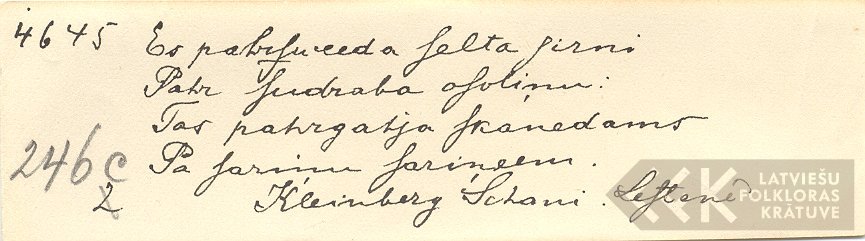 4645 Es pahrsweeda selta sirni
Pahr sudraba osoliņu:
Tas pahrgahja skanedams
246c Pa sarinu sariņeem.
2 Kleinberg Schani. Lestenē
LATVIEŠU
FOLKLORAS
KRĀTUVE